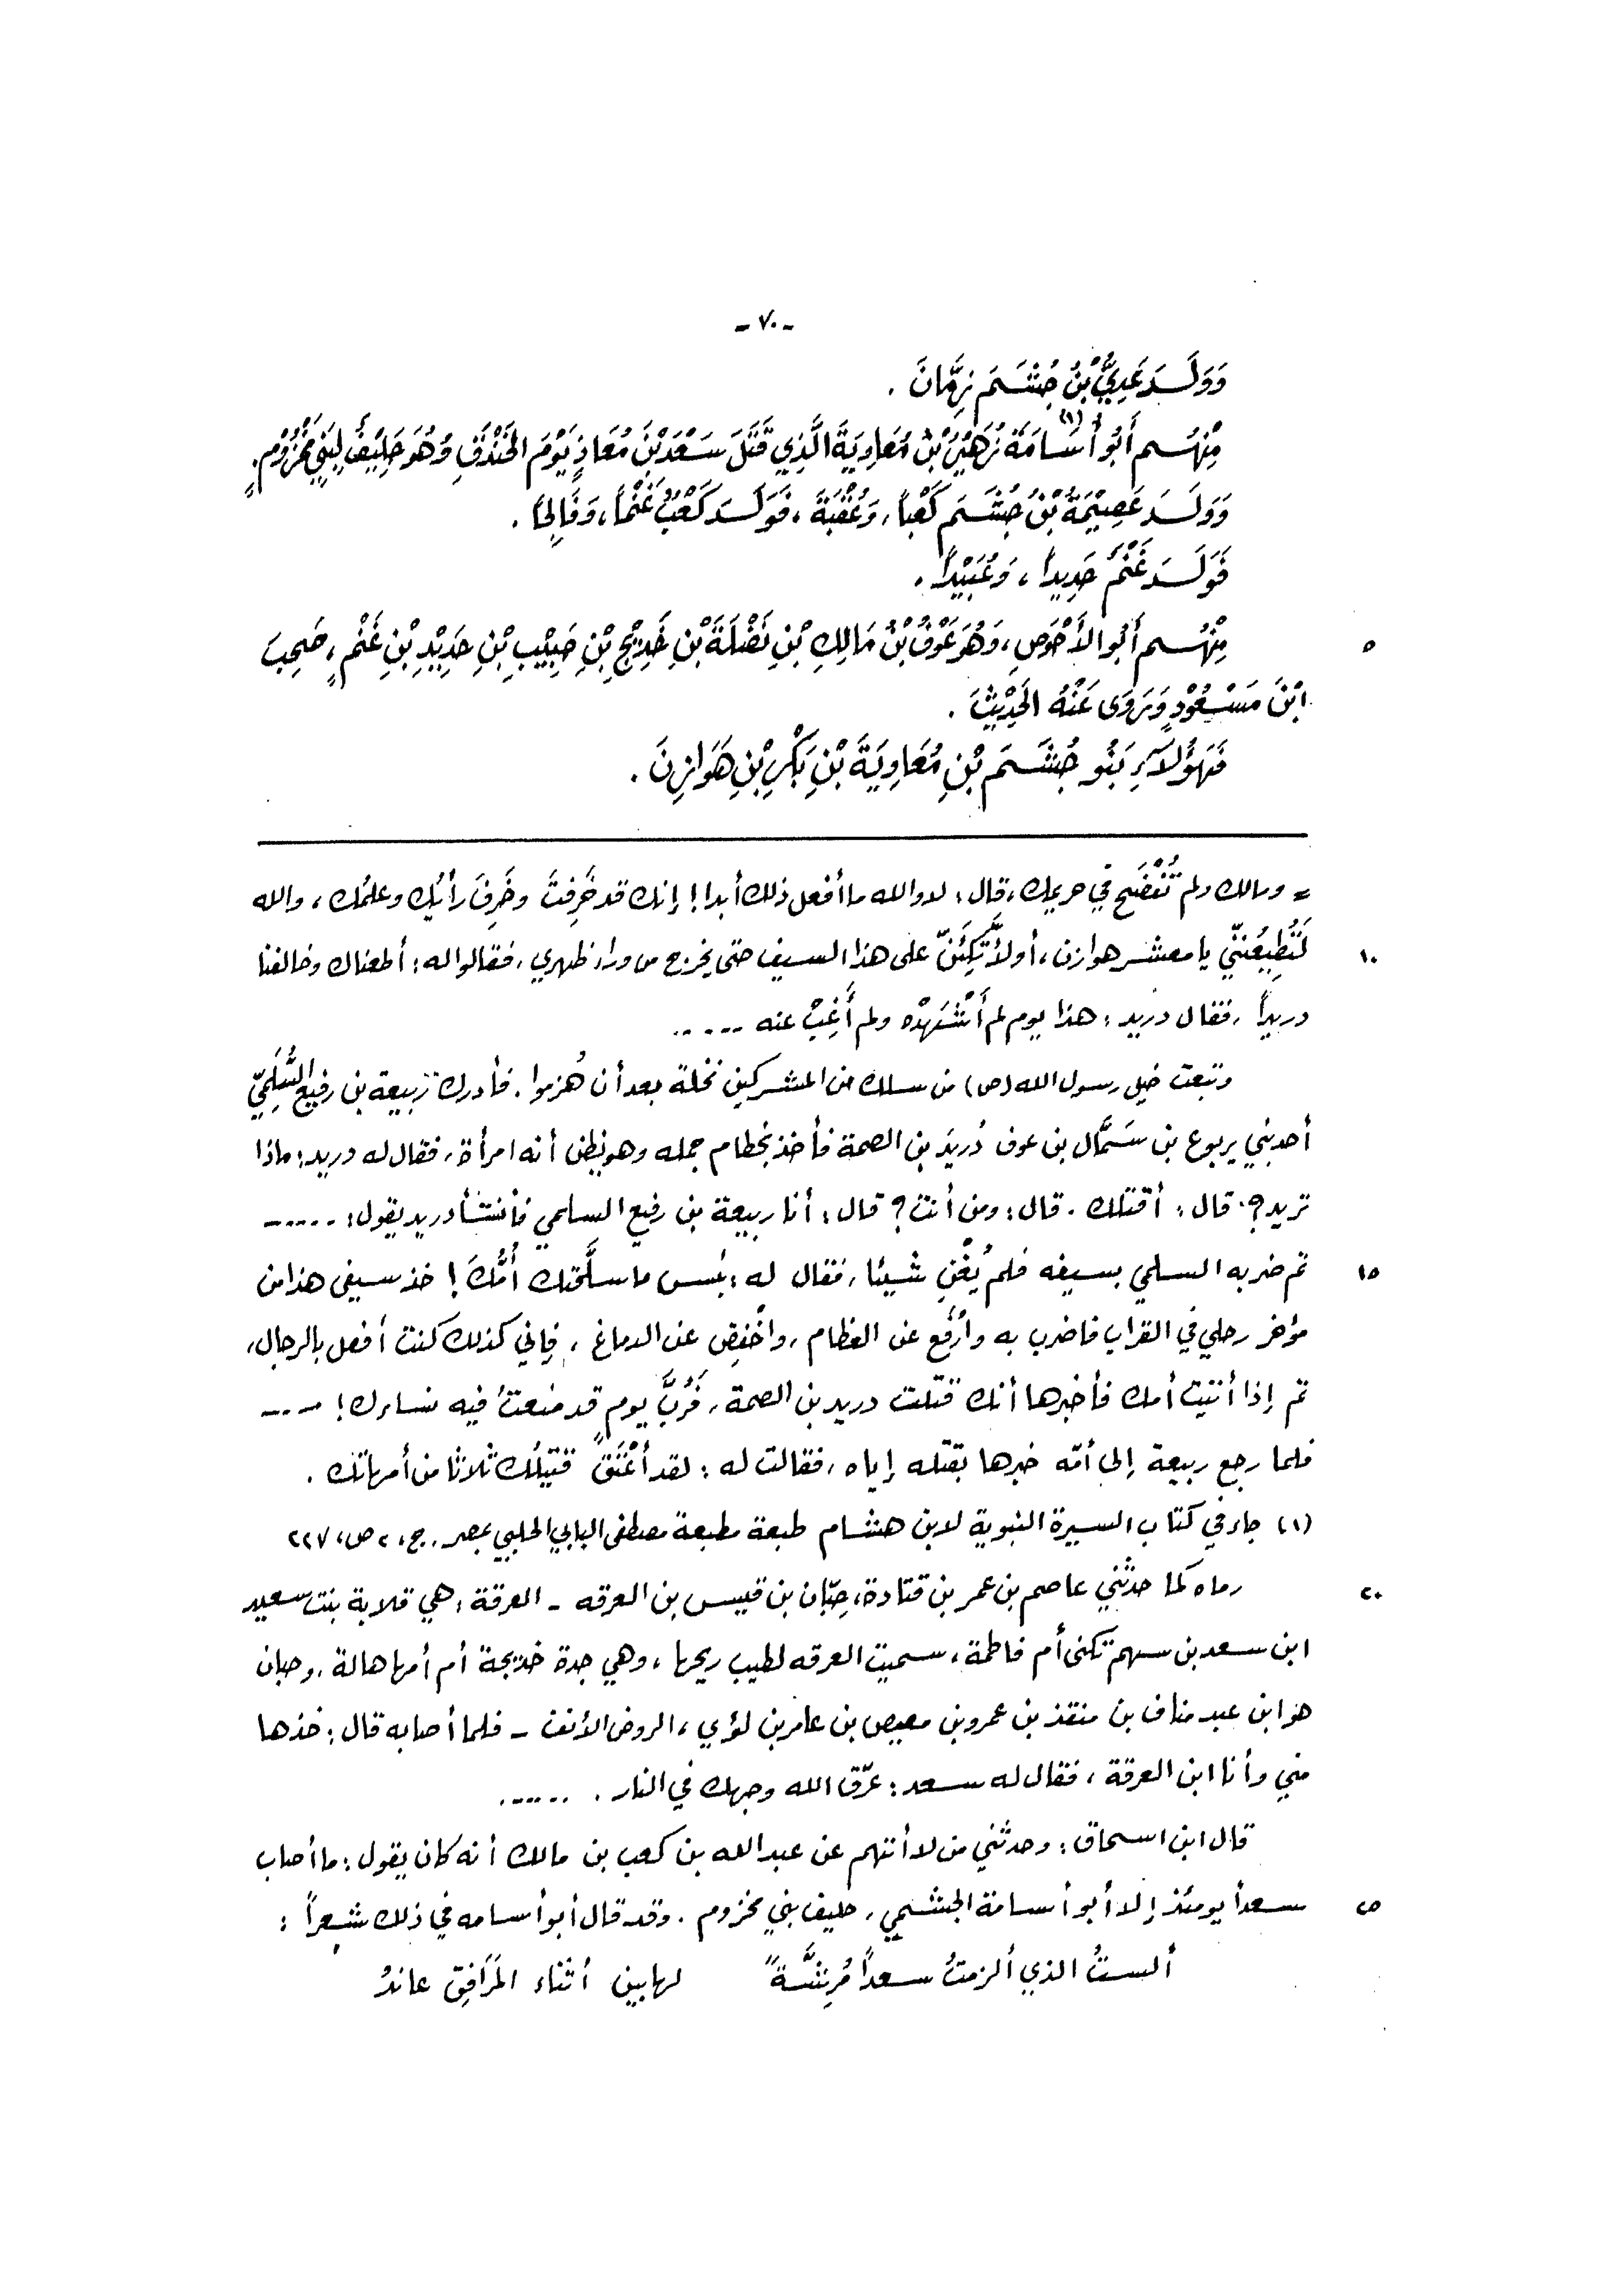 - ٧٠ -
وَوَلَـدَ عَدِيُّ بْنُ جُشَـمَ زِمَّانَ .
مِنْهُـم أَبُو أُسَامَةَ (١) زُهَيْرُ بْنُ مُعَاوِيَةَ الَّذِي قَتَلَ سَعْدَ بْنَ مُعَاذٍ يَوْمَ الخَنْدَقِ وَهُوَ حَلِيْفٌ لِبَنِي مَخْزُوْمٍ .
وَوَلَـدَ عَصِيْمَةُ بْنُ جُشَـمَ كَعْباً، وَعُقْبَةَ، فَوَلَـدَ كَعْبٌ غَنْماً، وَفَالِجاً .
فَوَلَـدَ غَنْمٌ حَدِيداً، وَعُبَيْداً .
٥ مِنْهُـم أَبُو الأَحْوَصِ، وَهُوَ عَوْفُ بْنُ مَالِكِ بْنِ نَضْلَةَ بْنِ خَدِيْجِ بْنِ حَبِيْبِ بْنِ حَدِيْدِ بْنِ غَنْمٍ، صَحِبَ
ابْنَ مَسْـعُوْدٍ وَيَرْوَى عَنْهُ الحَدِيْثَ .
فَهَؤُلاَءِ بَنُو جُشَـمَ بْنِ مُعَاوِيَةَ بْنِ بَكْرِ بْنِ هَوَازِنَ .
= ومالك ولم تُفْضَح في حريمك، قال: لا والله ما أفعل ذلك أبدا! إنك قد خَرِفتَ وخَرِفَ رأيُك وعلمُك، والله
١٠ لَتُطِيعُنَنّي يا معشـر هوازن، أو لأَتَّكِئَنّ على هذا السيف حتى يخرج من وراء ظهري، فقالوا له: أطعناك وخالفنا
دريداً، فقال دريد: هذا يوم لم أَشْهَدْه ولم أَغِبْ عنه .....
وتبعت خيل رسول الله (ص) من سلك من المشركين نخلة بعد أن هُزموا. فأدرك ربيعة بن رفيع السُّلَمِيّ
أحد بني يربوع بن سَمَّال بن عوف دُريدَ بن الصمة فأخذ بخطام جمله وهو يظن أنه امرأة، فقال له دريد: ماذا
تريد؟ قال: أقتلك. قال: ومن أنت؟ قال: أنا ربيعة بن رفيع السلمي فأنشأ دريد يقول: .....
١٥ ثم ضربه السلمي بسيفه فلم يُغْنِ شيئا، فقال له: بئس ما سلَّحتك أُمُّكَ! خذ سيفي هذا من
مؤخر رحلي في القراب فاضرب به وارْفَع عن العظام، واخْفِض عن الدماغ، فإني كذلك كنت أفعل بالرجال،
ثم إذا أتيت أمك فأخبرها أنك قتلت دريد بن الصمة، فَرُبَّ يومٍ قد منعتُ فيه نساءك! .....
فلما رجع ربيعة إلى أمّه خبرها بقتله إياه، فقالت له: لقد أعْتَقَ قتيلُك ثلاثا من أمهاتك .
(١) جاء في كتاب السيرة النبوية لابن هشام طبعة مطبعة مصطفى البابي الحلبي بمصر. ج، ٢ ص، ٢٢٧
٢٠ رماه كما حدثني عاصم بن عمر بن قتادة، حِبّان بن قيس بن العرقه - العرقة: هي قلابة بنت سعيد
ابن سعد بن سهم تكنى أم فاطمة، سميت العرقه لطيب ريحها، وهي جدة خديجة أم أمها هالة، وحبان
هو ابن عبد مناف بن منقذ بن عمرو بن معيص بن عامر بن لؤي، الروض الأنف - فلما أصابه قال: خذها
مني وأنا ابن العرقة، فقال له سعد: عرّق الله وجهك في النار. .....
قال ابن اسحاق: وحدثني من لا أتهم عن عبد الله بن كعب بن مالك أنه كان يقول: ما أصاب
٢٥ سعداً يومئذ إلا أبو أسامة الجشمي، حليف بني مخزوم. وقد قال أبو أسامه في ذلك شعراً:
ألستُ الذي ألزمتُ سعداً مُرِشَّةً لها بين أثناء المَرَافِقِ عاندُ